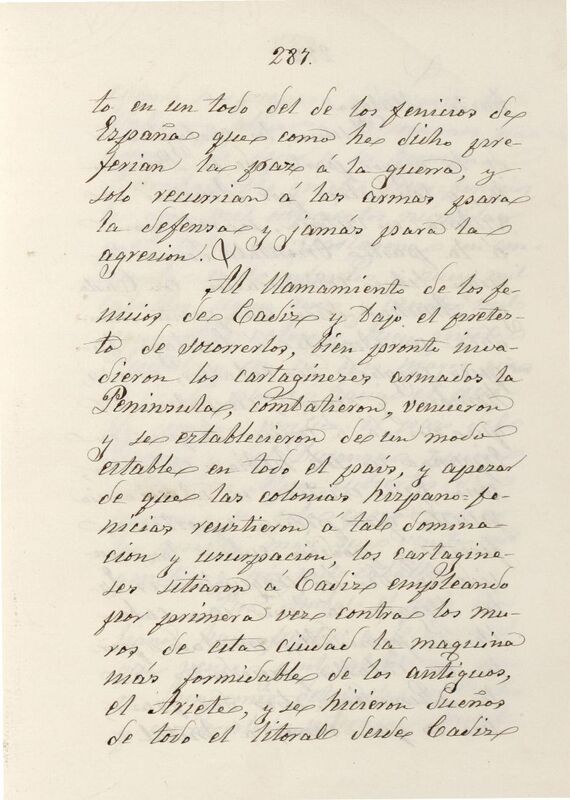 287.
to en un todo del de los fenicios de
España que como he dicho pre-
ferian la paz á la guerra, y
solo recurrian á las armas para
la defensa y jamás para la
agresion.
Al llamamiento de los fe-
nicios de Cadiz y bajo el pretes-
to de socorrerlos, bien pronto inva-
dieron los cartagineses armados la
Peninsula, combatieron, vencieron
y se establecieron de un modo
estable en todo el país, y apesar
de que las colonias hispano-fe-
nicias resistieron á tal domina-
cion y usurpacion, los cartagine-
ses sitiaron á Cadiz empleando
por primera vez contra los mu-
ros de esta ciudad la maquina
más formidable de los antiguos,
el Ariete, y se hicieron dueños
de todo el litoral desde Cadiz